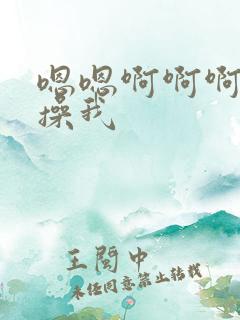 嗯嗯啊啊啊
操我
王闵中
未经同意禁止转载